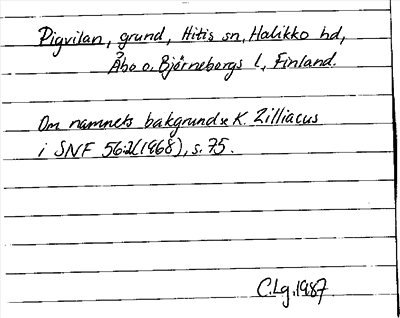 Pigvilan, grund, Hitis sn, Halikko hd,
Åbo o. Björneborgs l, Finland.
Om namnets bakgrund se K. Zilliacus
i SNF 56:2(1968), s. 75.
C.Lg. 1987